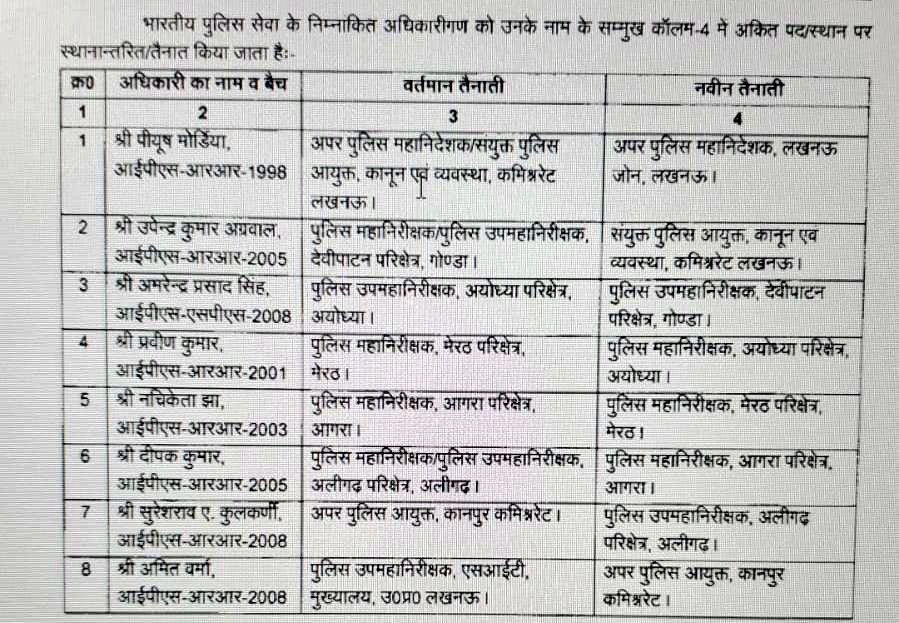 भारतीय पुलिस सेवा के निम्नांकित अधिकारीगण को उनके नाम के सम्मुख कॉलम-4 में अंकित पद/स्थान पर
स्थानान्तरित/तैनात किया जाता है:-
क्र0 अधिकारी का नाम व बैच वर्तमान तैनाती नवीन तैनाती
1 2 3 4
1 श्री पीयूष मोर्डिया, अपर पुलिस महानिदेशक/संयुक्त पुलिस अपर पुलिस महानिदेशक, लखनऊ
आईपीएस-आरआर-1998 आयुक्त, कानून एवं व्यवस्था, कमिश्नरेट जोन, लखनऊ।
लखनऊ।
2 श्री उपेन्द्र कुमार अग्रवाल, पुलिस महानिरीक्षक/पुलिस उपमहानिरीक्षक, संयुक्त पुलिस आयुक्त, कानून एवं
आईपीएस-आरआर-2005 देवीपाटन परिक्षेत्र, गोण्डा। व्यवस्था, कमिश्नरेट लखनऊ।
3 श्री अमरेन्द्र प्रसाद सिंह, पुलिस उपमहानिरीक्षक, अयोध्या परिक्षेत्र, पुलिस उपमहानिरीक्षक, देवीपाटन
आईपीएस-एसपीएस-2008 अयोध्या। परिक्षेत्र, गोण्डा।
4 श्री प्रवीण कुमार, पुलिस महानिरीक्षक, मेरठ परिक्षेत्र, पुलिस महानिरीक्षक, अयोध्या परिक्षेत्र,
आईपीएस-आरआर-2001 मेरठ। अयोध्या।
5 श्री नचिकेता झा, पुलिस महानिरीक्षक, आगरा परिक्षेत्र, पुलिस महानिरीक्षक, मेरठ परिक्षेत्र,
आईपीएस-आरआर-2003 आगरा। मेरठ।
6 श्री दीपक कुमार, पुलिस महानिरीक्षक/पुलिस उपमहानिरीक्षक, पुलिस महानिरीक्षक, आगरा परिक्षेत्र,
आईपीएस-आरआर-2005 अलीगढ़ परिक्षेत्र, अलीगढ़। आगरा।
7 श्री सुरेशराव ए. कुलकर्णी, अपर पुलिस आयुक्त, कानपुर कमिश्नरेट। पुलिस उपमहानिरीक्षक, अलीगढ़
आईपीएस-आरआर-2008 परिक्षेत्र, अलीगढ़।
8 श्री अमित वर्मा, पुलिस उपमहानिरीक्षक, एसआईटी, अपर पुलिस आयुक्त, कानपुर
आईपीएस-आरआर-2008 मुख्यालय, उ0प्र0 लखनऊ। कमिश्नरेट।